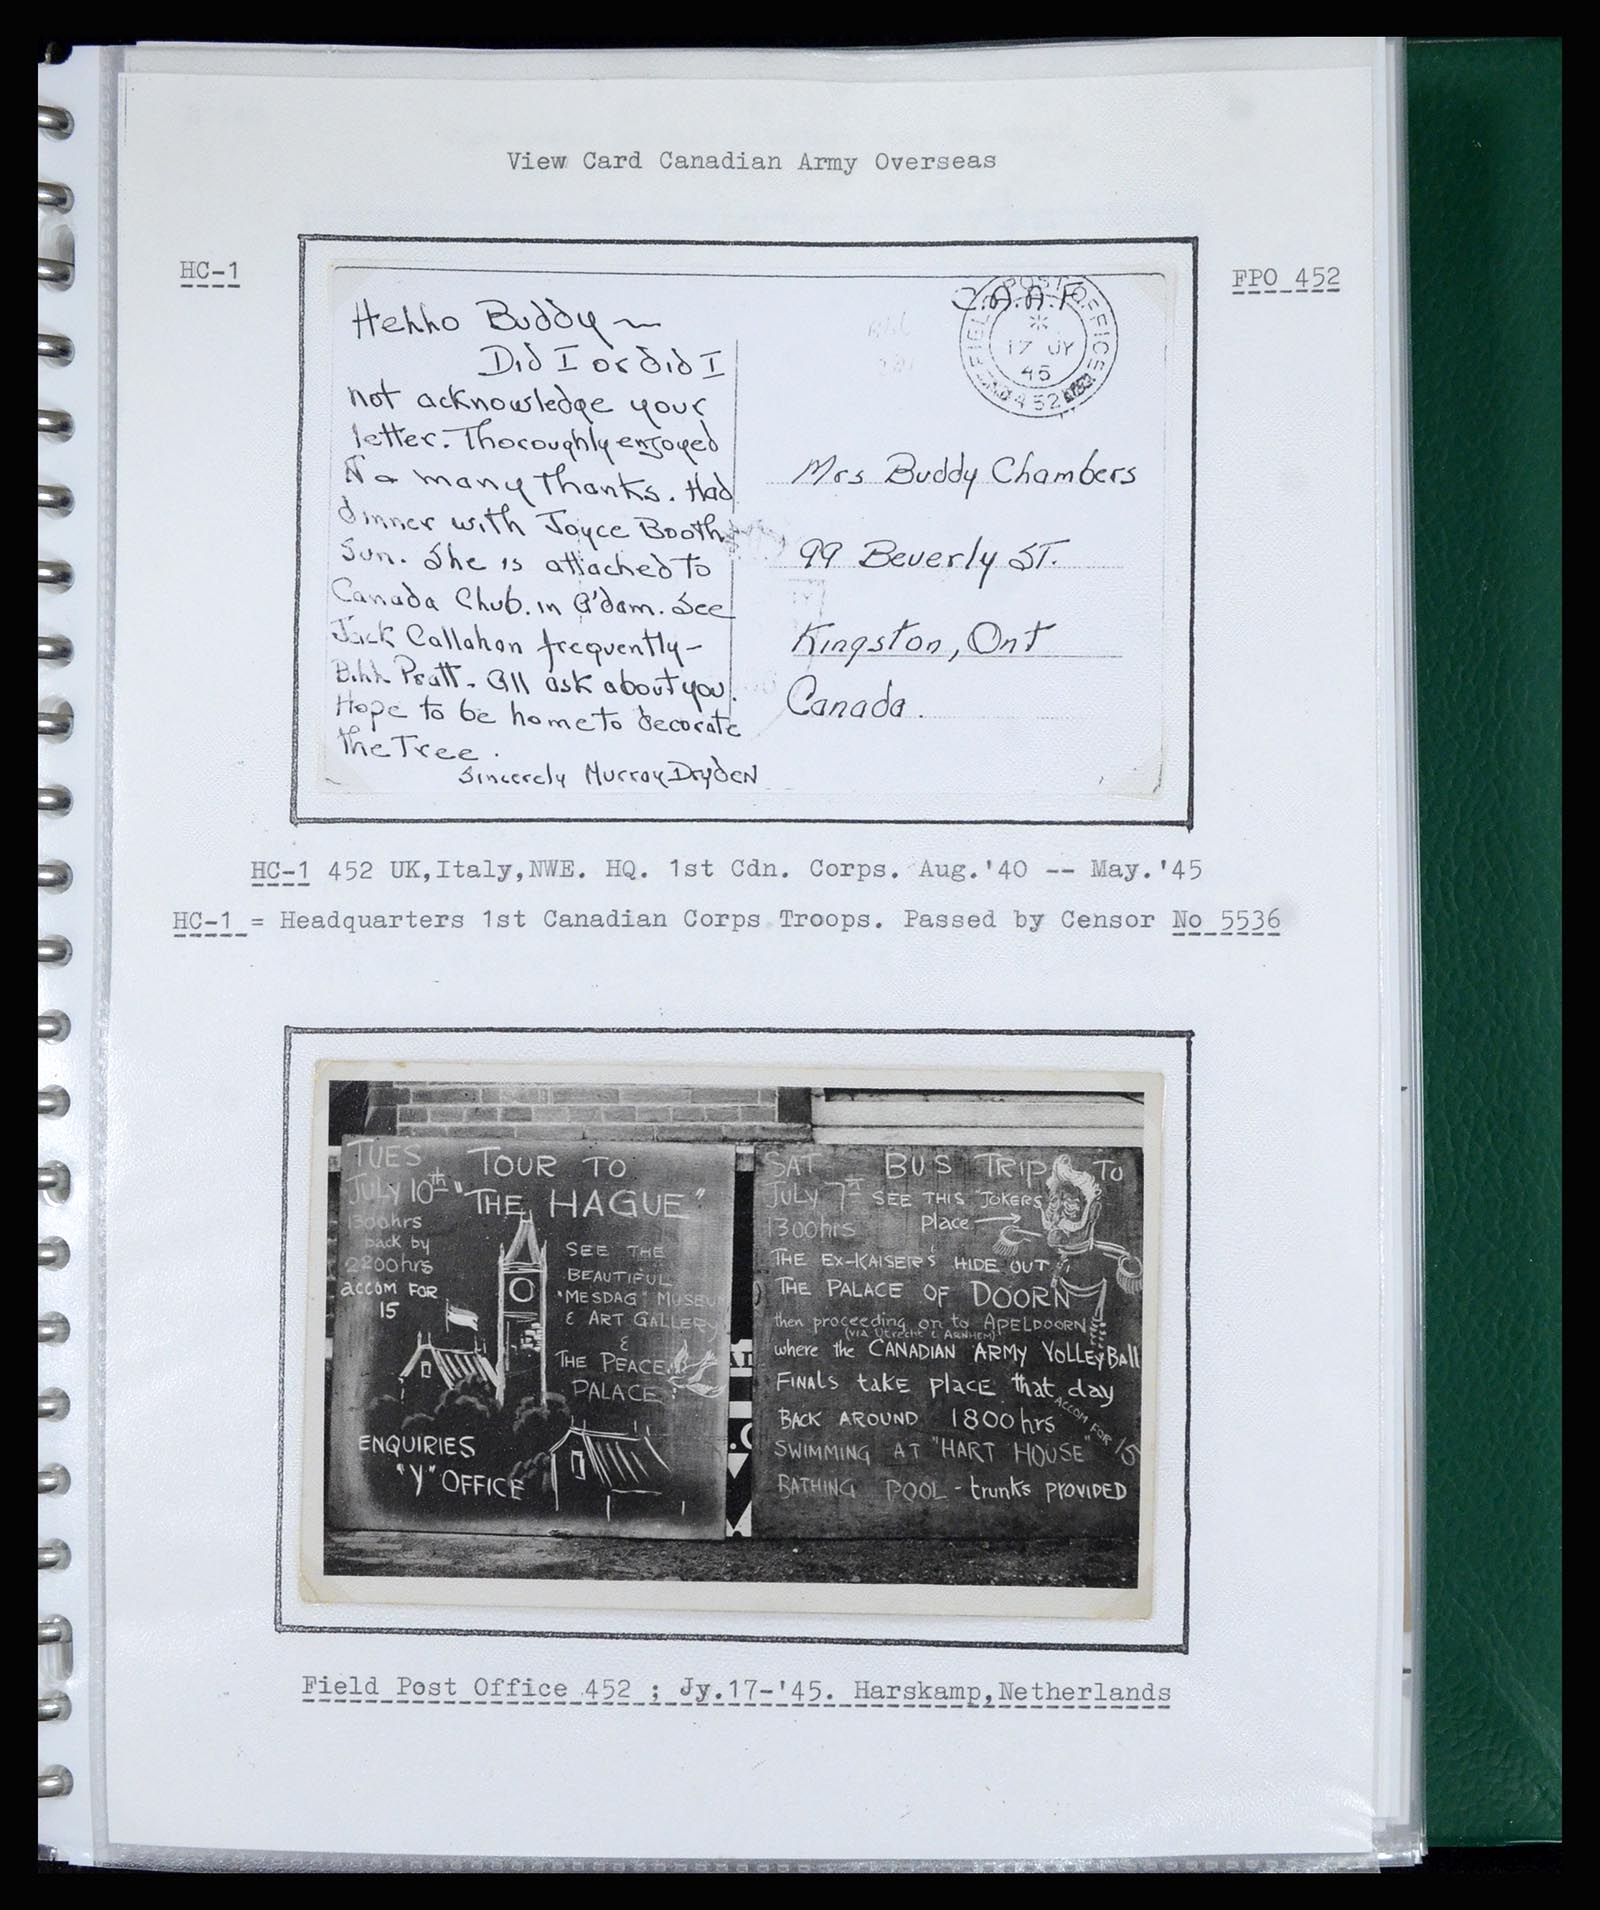 View Card Canadian Army Overseas
HC-1
FPO 452
Hello Buddy ~
Did I or did I
not acknowledge your
letter. Thoroughly enjoyed
it & many thanks. Had
dinner with Joyce Booth
Sun. She is attached to
Canada Club. in A'dam. See
Jack Callahan frequently -
Bill Pratt. All ask about you.
Hope to be home to decorate
the Tree.
Sincerely Murray Dryden
C.A.A.F.
FIELD POST OFFICE
17 JY
45
452
Mrs Buddy Chambers
99 Beverly ST.
Kingston, Ont
Canada.
HC-1 452 UK,Italy,NWE. HQ. 1st Cdn. Corps. Aug.'40 -- May.'45
HC-1 = Headquarters 1st Canadian Corps Troops. Passed by Censor No 5536
TUES
JULY 10th
1300hrs
back by
2200hrs
accom FOR
15
TOUR TO
"THE HAGUE"
SEE THE
BEAUTIFUL
"MESDAG" MUSEUM
& ART GALLERY
&
THE PEACE
PALACE
ENQUIRIES
"Y" OFFICE
SAT
JULY 7th
1300hrs
BUS TRIP TO
SEE THIS JOKERS
place
THE EX-KAISER'S HIDE OUT
THE PALACE OF DOORN
then proceeding on to APELDOORN
(VIA Utrecht & ARNHEM)
where the CANADIAN ARMY VOLLEYBall
FINALS take place that day
BACK AROUND 1800hrs
ACCOM FOR 15
SWIMMING AT "HART HOUSE"
BATHING POOL - trunks PROVIDED
Field Post Office 452 ; Jy.17-'45. Harskamp,Netherlands